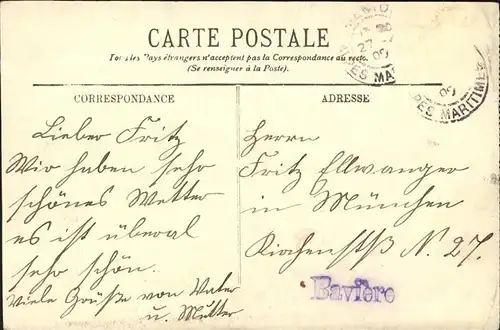 CARTE POSTALE
Tous les Pays étrangers n'acceptent pas la Correspondance au recto.
(Se renseigner à la Poste).
CORRESPONDANCE
Lieber Fritz
Wir haben sehr
schönes Wetter
es ist überal
sehr schön.
Viele Grüße von Vater
u. Mutter
ADRESSE
Herrn
Fritz Ellwanger
in München
Kirchenstß N. 27.
Bavière
27
09
PES MARITIMES
09
PES MARITIMES